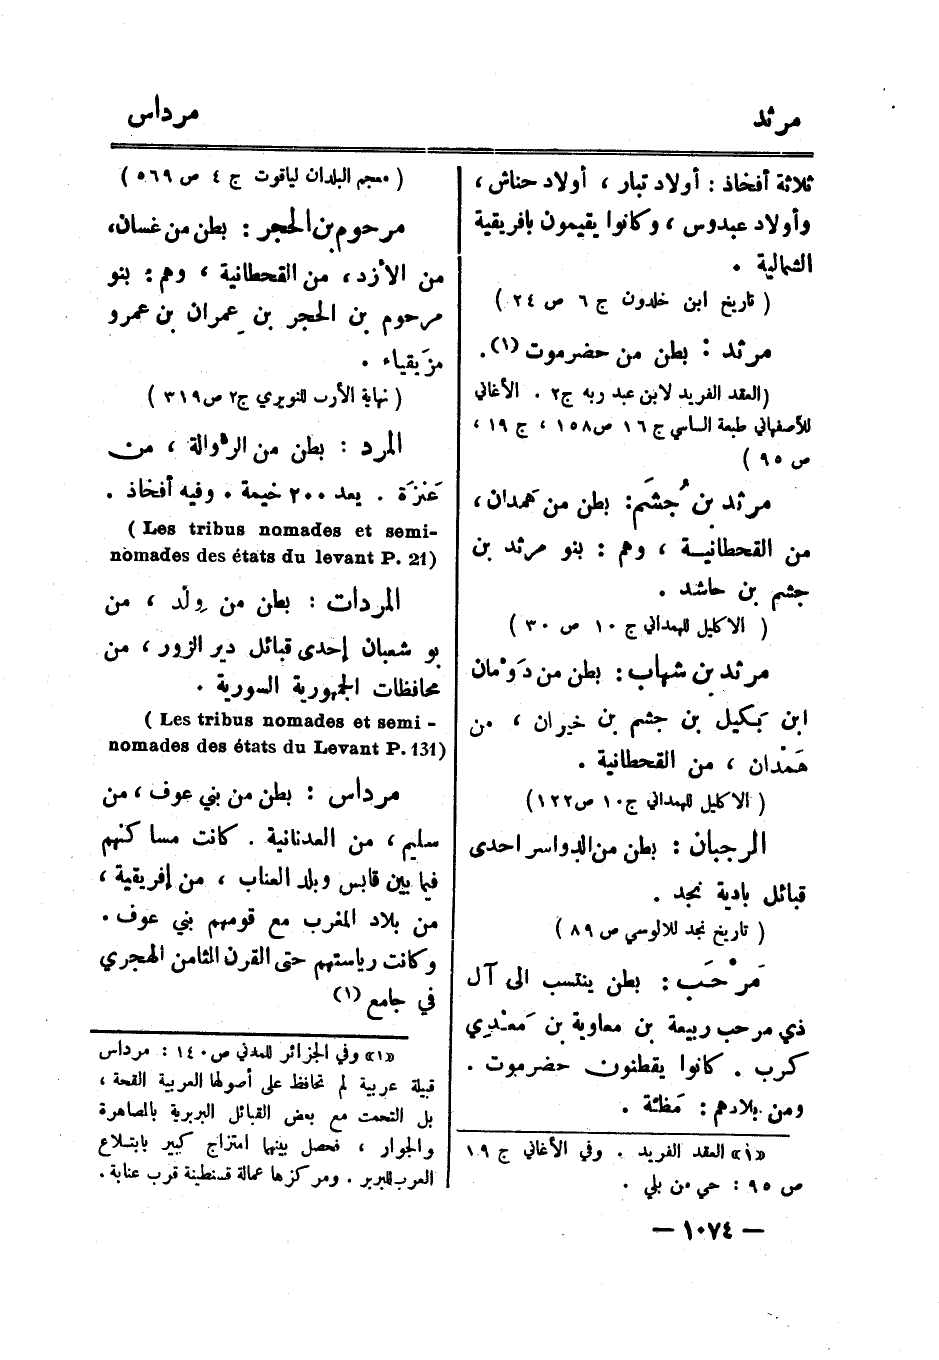 مرثد
مرداس
ثلاثة أفخاذ : أولاد تبار ، أولاد حناش ،
وأولاد عبدوس ، وكانوا يقيمون بافريقية
الشمالية .
( تاريخ ابن خلدون ج ٦ ص ٢٤ )
مرثد : بطن من حضرموت (١).
(العقد الفريد لابن عبد ربه ج٢ . الأغاني
للأصفهاني طبعة الساسي ج ١٦ ص١٥٨ ، ج ١٩ ،
ص ٩٥ )
مرثد بن جُشَم: بطن من همدان ،
من القحطانية ، وهم : بنو مرثد بن
جشم بن حاشد .
( الاكليل للهمداني ج ١٠ ص ٣٠ )
مرثد بن شهاب: بطن من دَوْمان
ابن بَكيل بن جشم بن خيران ، من
هَمْدان ، من القحطانية .
( الاكليل للهمداني ج١٠ ص١٢٢)
الرجبان : بطن من الدواسر احدى
قبائل بادية نجد .
( تاريخ نجد للالوسي ص ٨٩ )
مَرْحَب : بطن ينتسب الى آل
ذي مرحب ربيعة بن معاوية بن مَعْدي
كرب . كانوا يقطنون حضرموت .
ومن بلادهم : مَظثة .
«١» العقد الفريد . وفي الأغاني ج ١٩
ص ٩٥ : حي من بلي .
( معجم البلدان لياقوت ج ٤ ص ٥٦٩ )
مرحوم بن الحجر : بطن من غسان،
من الأزد، من القحطانية ، وهم: بنو
مرحوم بن الحجر بن عمران بن عمرو
مزيقياء .
( نهاية الأرب للنويري ج٢ ص٣١٩ )
المرد : بطن من الرْوالة ، من
عَنزَة . يعد ٢٠٠ خيمة . وفيه أفخاذ .
( Les tribus nomades et semi-
nomades des états du levant P. 21)
المردات : بطن من وِلْد ، من
بو شعبان إحدى قبائل دير الزور ، من
محافظات الجمهورية السورية .
( Les tribus nomades et semi -
nomades des états du Levant P. 131)
مرداس : بطن من بني عوف ، من
سليم ، من العدنانية . كانت مساكنهم
فيما بين قابس وبلد العناب ، من إفريقية ،
من بلاد المغرب مع قومهم بني عوف.
وكانت رياستهم حتى القرن الثامن الهجري
في جامع (١)
«١» وفي الجزائر للمدني ص١٤٠ : مرداس
قبيلة عربية لم تحافظ على أصولها العربية القحة ،
بل التحمت مع بعض القبائل البربرية بالمصاهرة
والجوار ، فحصل بينها امتزاج كبير بابتلاع
العرب للبربر . ومركزها عمالة قسنطينة قرب عنابة .
— ١٠٧٤ —